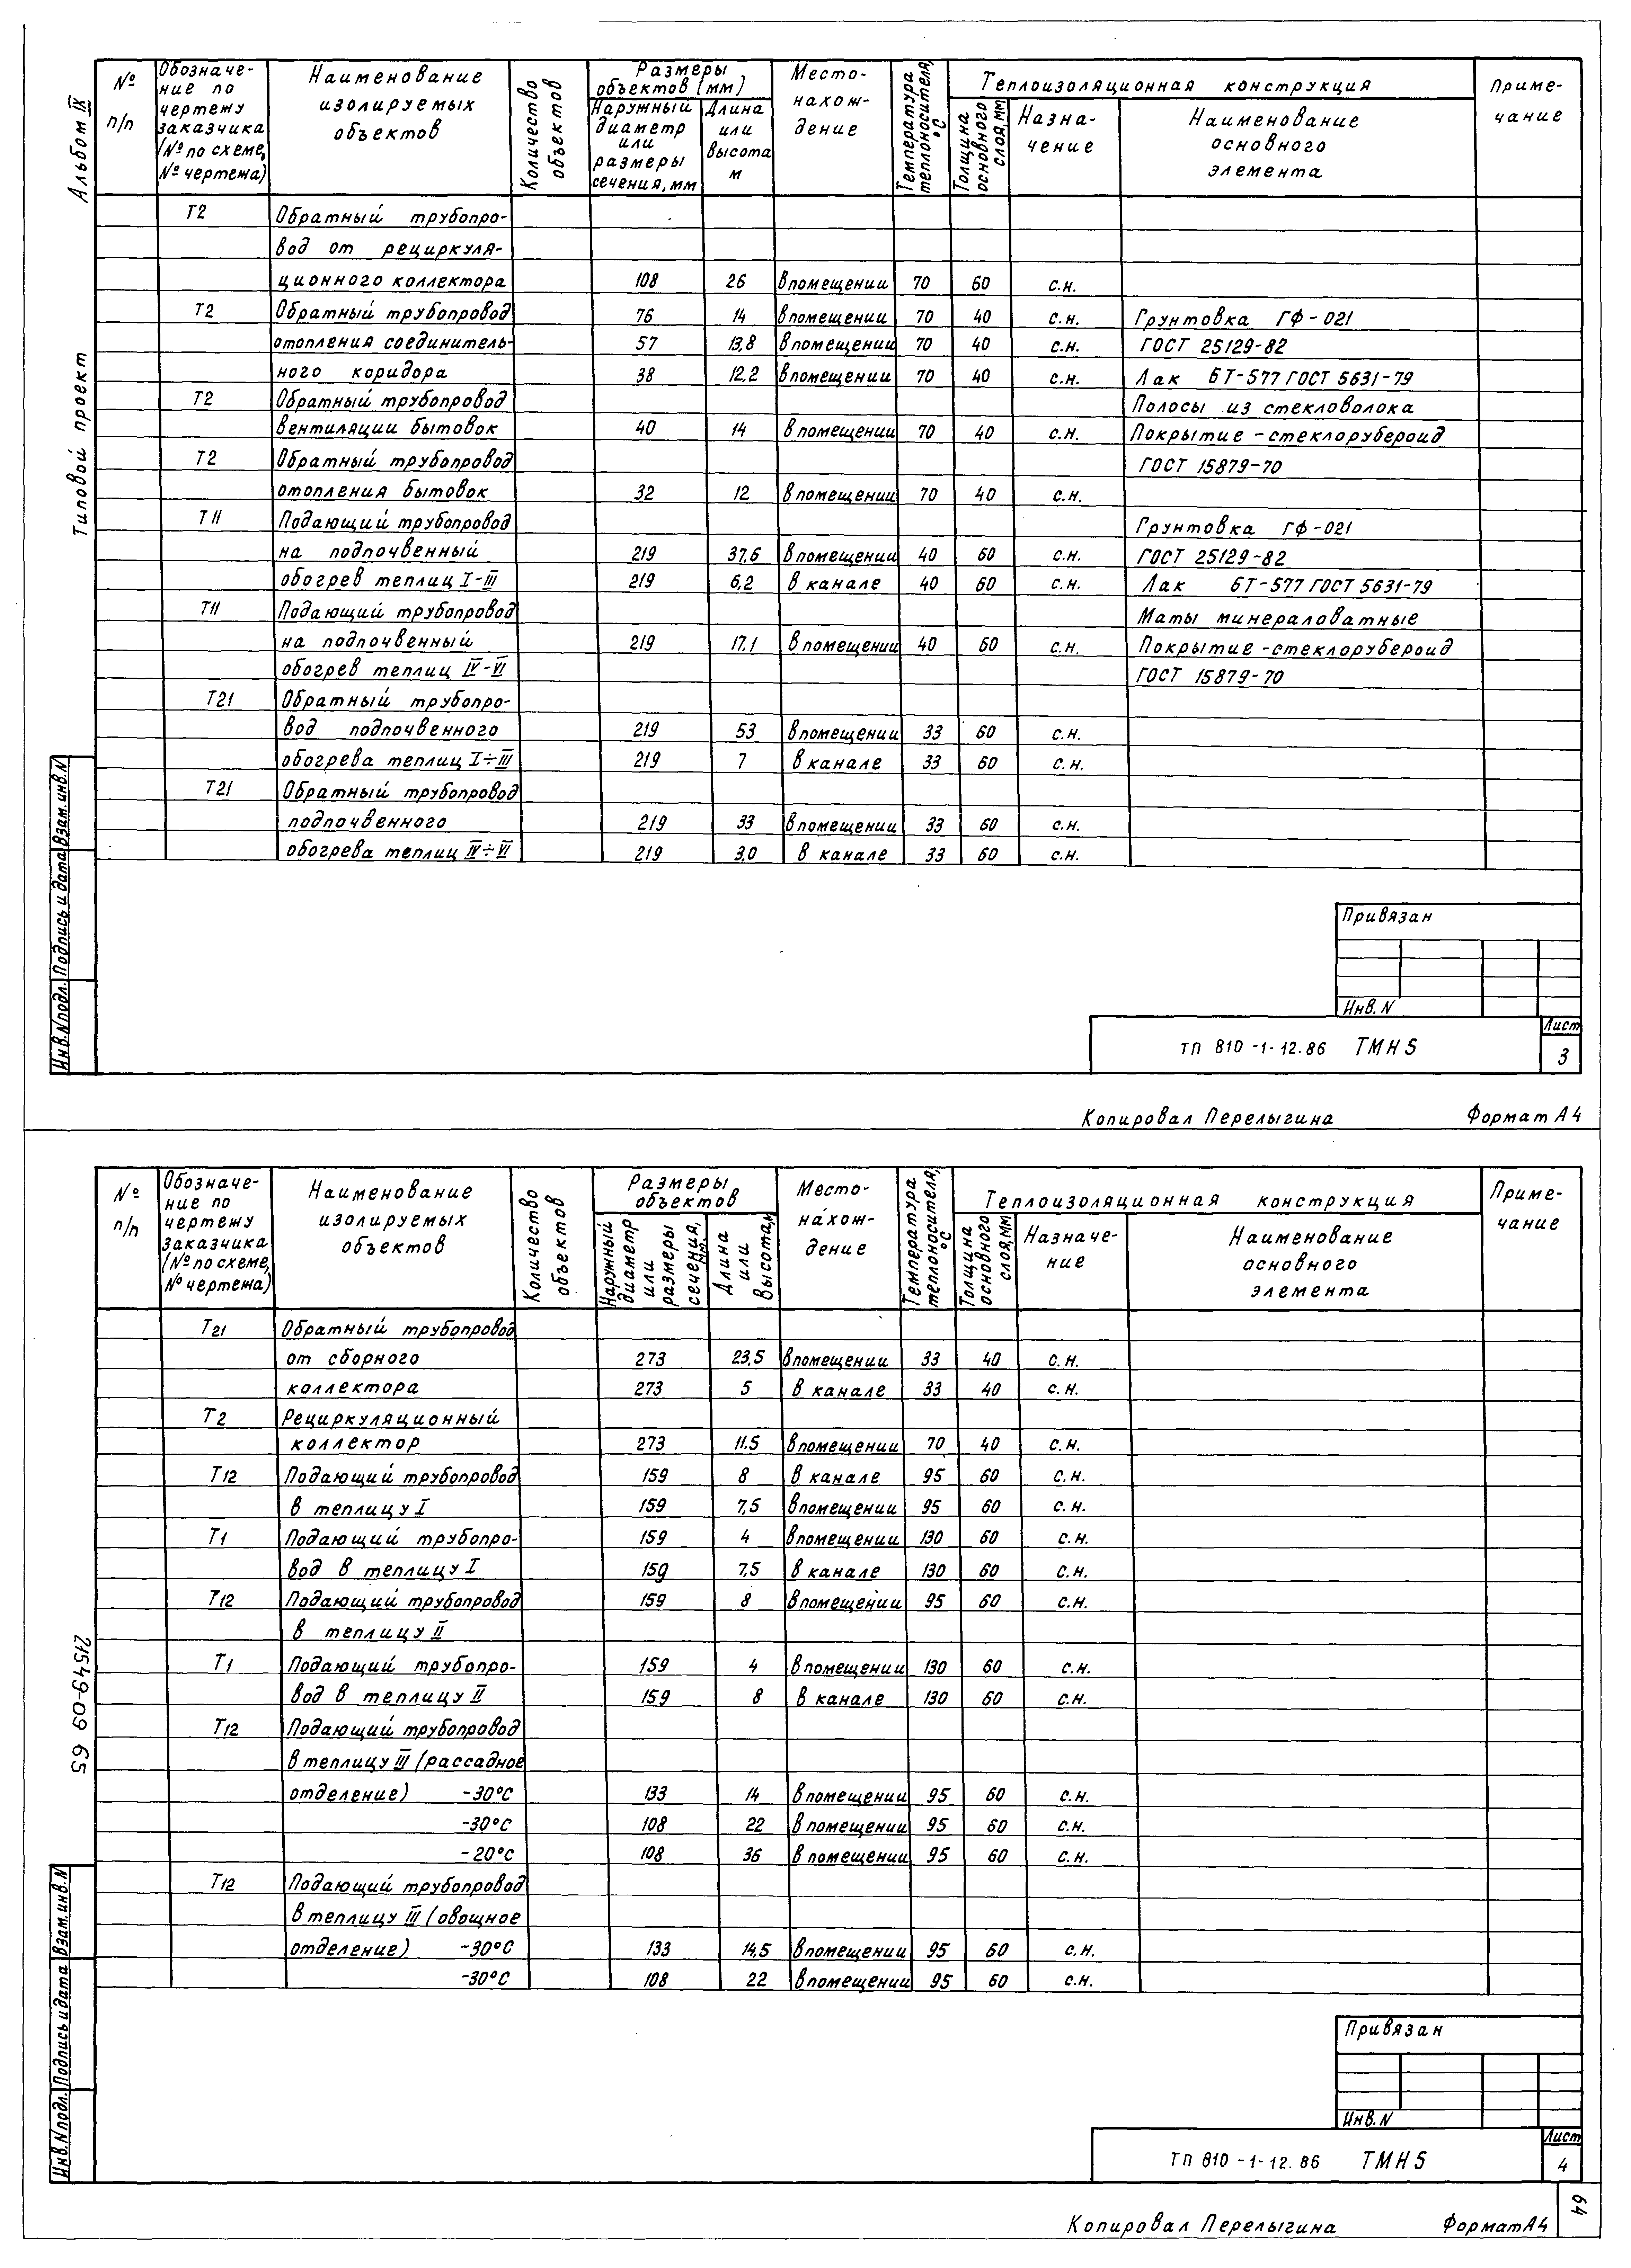 Альбом IX
Типовой проект
№ п/п
Обозначе-
ние по
чертежу
заказчика
(№ по схеме,
№ чертежа)
Наименование
изолируемых
объектов
Количество
объектов
Размеры
объектов (мм)
Наружный
диаметр
или
размеры
сечения, мм
Длина
или
высота
м
Место-
нахож-
дение
Температура
теплоносителя,
°С
Теплоизоляционная конструкция
Толщина
основного
слоя, мм
Назна-
чение
Наименование
основного
элемента
Приме-
чание
Т2 Обратный трубопро-
вод от рециркуля-
ционного коллектора 108 26 в помещении 70 60 с.н.
Т2 Обратный трубопровод 76 14 в помещении 70 40 с.н. Грунтовка ГФ-021
отопления соединитель- 57 13,8 в помещении 70 40 с.н. ГОСТ 25129-82
ного коридора 38 12,2 в помещении 70 40 с.н. Лак БТ-577 ГОСТ 5631-79
Т2 Обратный трубопровод Полосы из стекловолока
вентиляции бытовок 40 14 в помещении 70 40 с.н. Покрытие-стеклорубероид
Т2 Обратный трубопровод ГОСТ 15879-70
отопления бытовок 32 12 в помещении 70 40 с.н.
Т11 Подающий трубопровод Грунтовка ГФ-021
на подпочвенный 219 37,6 в помещении 40 60 с.н. ГОСТ 25129-82
обогрев теплиц I-III 219 6,2 в канале 40 60 с.н. Лак БТ-577 ГОСТ 5631-79
Т11 Подающий трубопровод Маты минераловатные
на подпочвенный 219 17.1 в помещении 40 60 с.н. Покрытие-стеклорубероид
обогрев теплиц IV-VI ГОСТ 15879-70
Т21 Обратный трубопро-
вод подпочвенного 219 53 в помещении 33 60 с.н.
обогрева теплиц I÷III 219 7 в канале 33 60 с.н.
Т21 Обратный трубопровод
подпочвенного 219 33 в помещении 33 60 с.н.
обогрева теплиц IV÷VI 219 3,0 в канале 33 60 с.н.
Инв.N подл. Подпись и дата Взам.инв.N
Привязан
Инв. N
ТП 810-1-12.86 ТМН5
Лист
3
Копировал Перелыгина Формат А4
№ п/п
Обозначе-
ние по
чертежу
заказчика
(№ по схеме,
№ чертежа)
Наименование
изолируемых
объектов
Количество
объектов
Размеры
объектов
Наружный
диаметр
или
размеры
сечения,
мм.
Длина
или
высота, м
Место-
нахож-
дение
Температура
теплоносителя,
°С
Теплоизоляционная конструкция
Толщина
основного
слоя, мм
Назначе-
ние
Наименование
основного
элемента
Приме-
чание
Т21 Обратный трубопровод
от сборного 273 23,5 в помещении 33 40 с.н.
коллектора 273 5 в канале 33 40 с.н.
Т2 Рециркуляционный
коллектор 273 11.5 в помещении 70 40 с.н.
Т12 Подающий трубопровод 159 8 в канале 95 60 с.н.
в теплицу I 159 7,5 в помещении 95 60 с.н.
Т1 Подающий трубопро- 159 4 в помещении 130 60 с.н.
вод в теплицу I 159 7,5 в канале 130 60 с.н.
Т12 Подающий трубопровод 159 8 в помещении 95 60 с.н.
в теплицу II
Т1 Подающий трубопро- 159 4 в помещении 130 60 с.н.
вод в теплицу II 159 8 в канале 130 60 с.н.
Т12 Подающий трубопровод
в теплицу III (рассадное
отделение) -30°С 133 14 в помещении 95 60 с.н.
-30°С 108 22 в помещении 95 60 с.н.
-20°С 108 36 в помещении 95 60 с.н.
Т12 Подающий трубопровод
в теплицу III (овощное
отделение) -30°С 133 14,5 в помещении 95 60 с.н.
-30°С 108 22 в помещении 95 60 с.н.
21549-09 65
Инв.N подл. Подпись и дата Взам.инв.N
Привязан
Инв. N
ТП 810-1-12.86 ТМН5
Лист
4
Копировал Перелыгина Формат А4
64